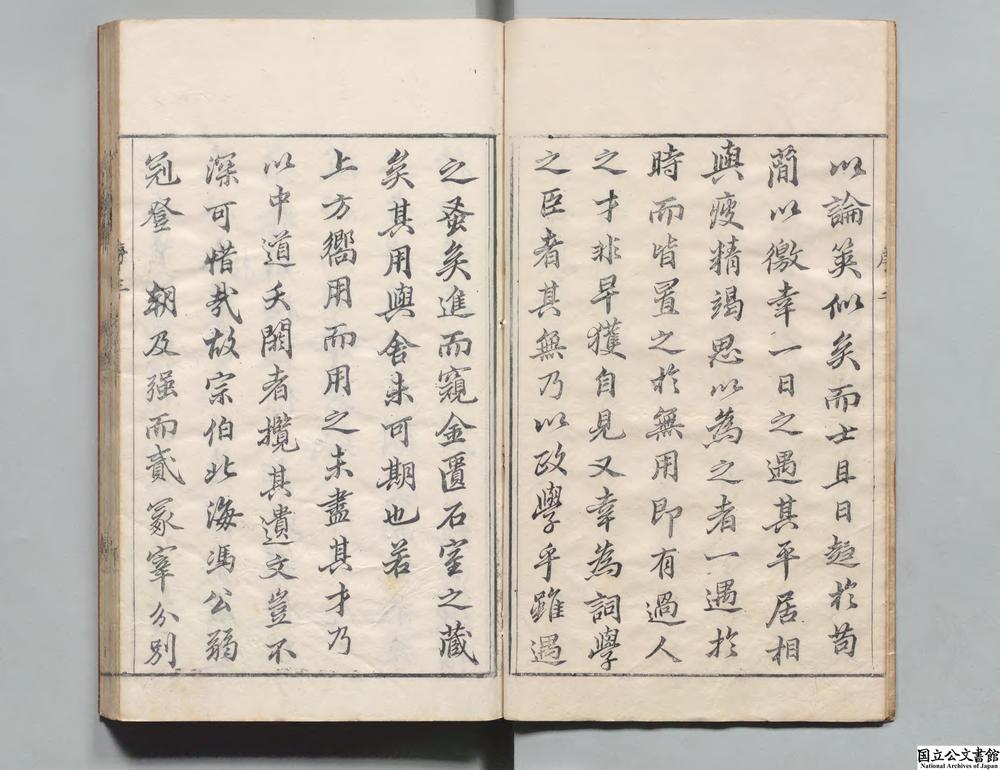 以論筴似矣而士且日趨於苟
簡以徼幸一日之遇其平居相
與疲精竭思以為之者一遇於
時而皆置之於無用即有過人
之才非早獲自見又幸為詞學
之臣者其無乃以政學乎雖遇
之蚤矣進而窺金匱石室之藏
矣其用與舍未可期也若
上方嚮用而用之未盡其才乃
以中道夭閼者攬其遺文豈不
深可惜哉故宗伯北海馮公弱
冠登 朝及强而貳冢宰分別
国立公文書館
National Archives of Japan